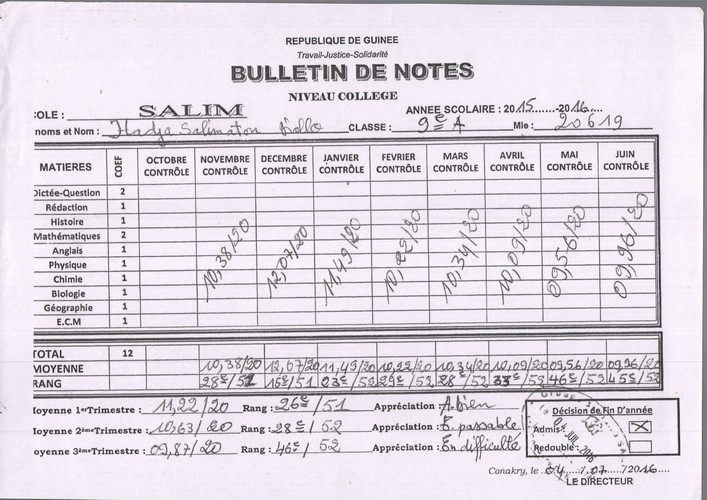 REPUBLIQUE DE GUINEE
Travail-Justice-Solidarité
BULLETIN DE NOTES
NIVEAU COLLEGE
COLE : SALIM ANNEE SCOLAIRE : 2015 -2016
noms et Nom : Hadja Salimatou Diallo CLASSE : 9e A Mle : 20619
MATIERES COEF OCTOBRE CONTRÔLE NOVEMBRE CONTRÔLE DECEMBRE CONTRÔLE JANVIER CONTRÔLE FEVRIER CONTRÔLE MARS CONTRÔLE AVRIL CONTRÔLE MAI CONTRÔLE JUIN CONTRÔLE
Dictée-Question 2
Rédaction 1
Histoire 1
Mathématiques 2
Anglais 1
Physique 1
Chimie 1
Biologie 1
Géographie 1
E.C.M 1
10,38/20 12,07/20 11,49/20 10,22/20 10,34/20 10,09/20 09,56/20 09,96/20
TOTAL 12
MOYENNE 10,38/20 12,07/20 11,49/20 10,22/20 10,34/20 10,09/20 09,56/20 09,96/20
RANG 28e/51 15e/51 23e/52 29e/52 28e/52 33e/52 46e/52 45e/52
Moyenne 1er Trimestre : 11,22/20 Rang : 26e/51 Appréciation A.bien
Moyenne 2ème Trimestre : 10,63/20 Rang : 28e/52 Appréciation : T. passable
oyenne 3ème Trimestre : 09,87/20 Rang : 46e/52 Appréciation : En difficulté
Décision de Fin D'année
Admis : X
Redouble :
Conakry, le 04 / 07 /2016
LE DIRECTEUR